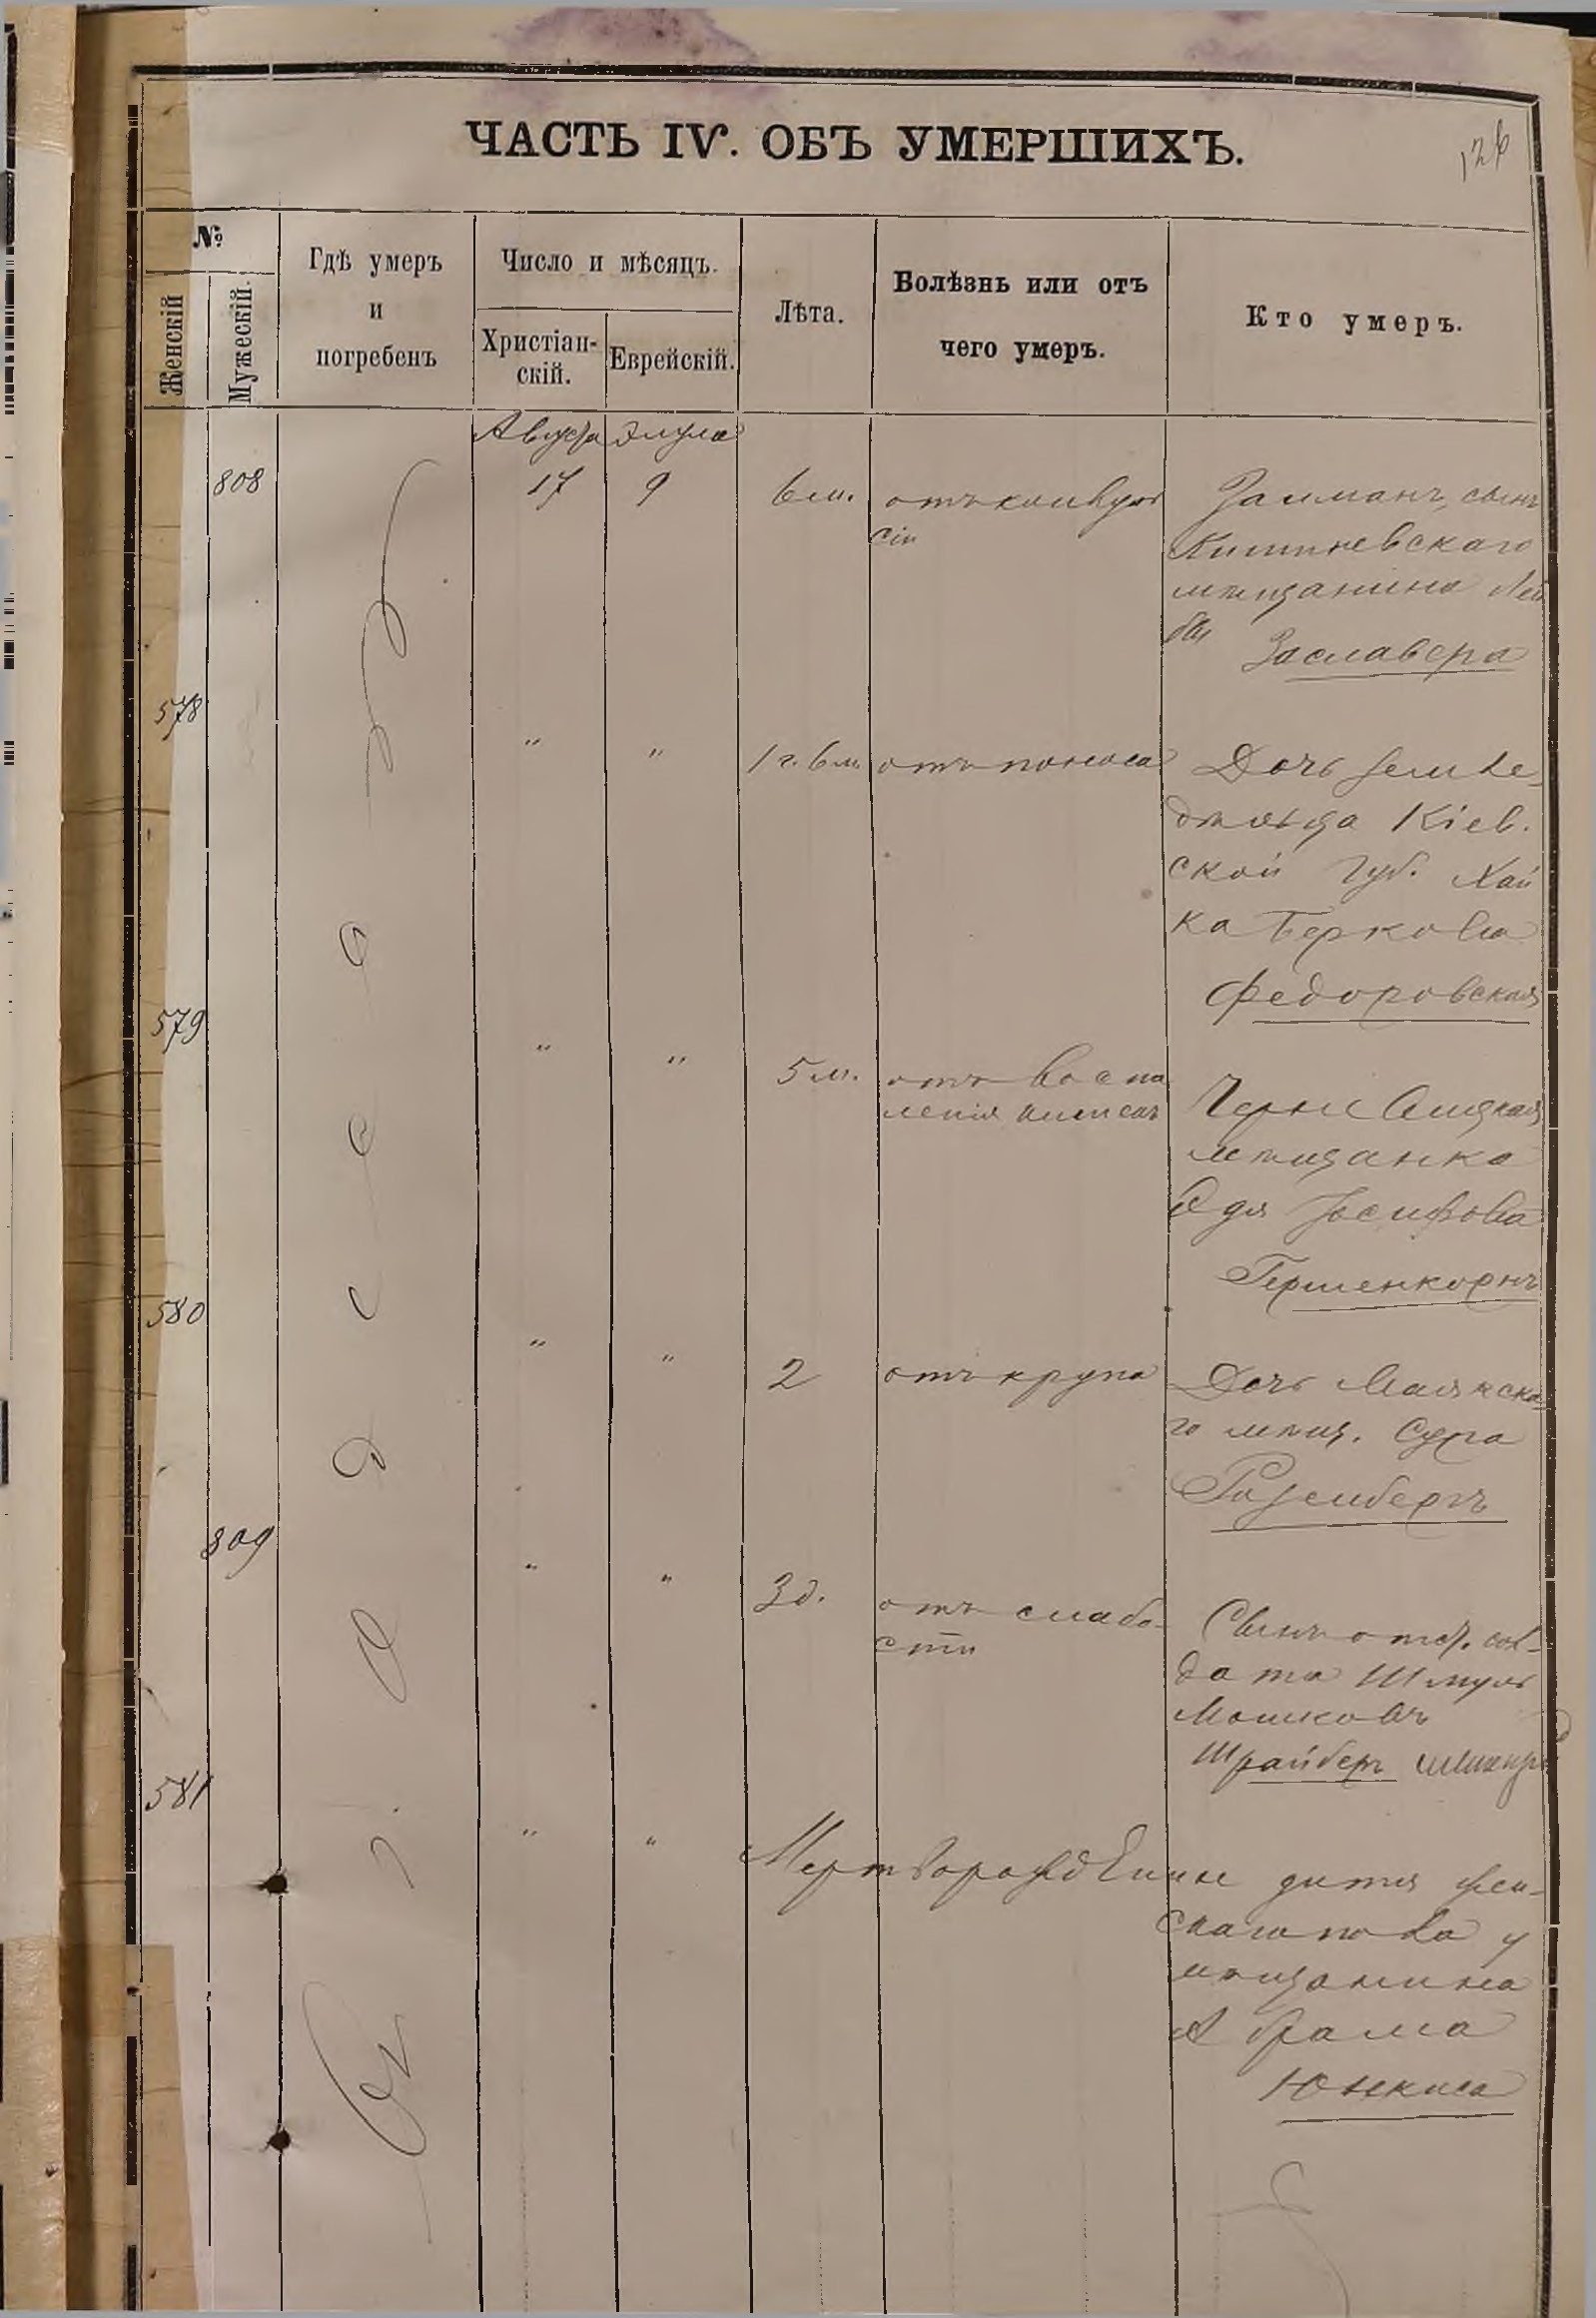 ЧАСТЬ IV. ОБЪ УМЕРШИХЪ.
126
№
Женскій
Мужескій.
Гдѣ умеръ
и
погребенъ
Число и мѣсяцъ.
Христіан-
скій.
Еврейскій.
Лѣта.
Болѣзнь или отъ
чего умеръ.
Кто умеръ.
Августа Элула
808 17 9 6 м. отъ конвуль
сіи
Залманъ, сынъ
Кишиневскаго
мѣщанина Лей
бы
Заславера
578 " " 1 г. 6 м. отъ поноса
Дочь земле
дѣльца Кіев.
ской губ. Хай
ка Беркова
Федоровская
579 " " 5 м. отъ воспа
ленія кишекъ
мѣщанка
Эдя Іосифова
Гершенкорнъ
580 " " 2 отъ крупа
Дочь Маякска
го мѣщ. Сура
Розенбергъ
809 " " 3 д. отъ слабо-
сти
Сынъ отст. сол-
дата Шмуль
Мошковъ
Шрайберъ
581 " " Мертворожденное дитя жен-
скаго пола у
мѣщанина
Абрама
Юнкиса